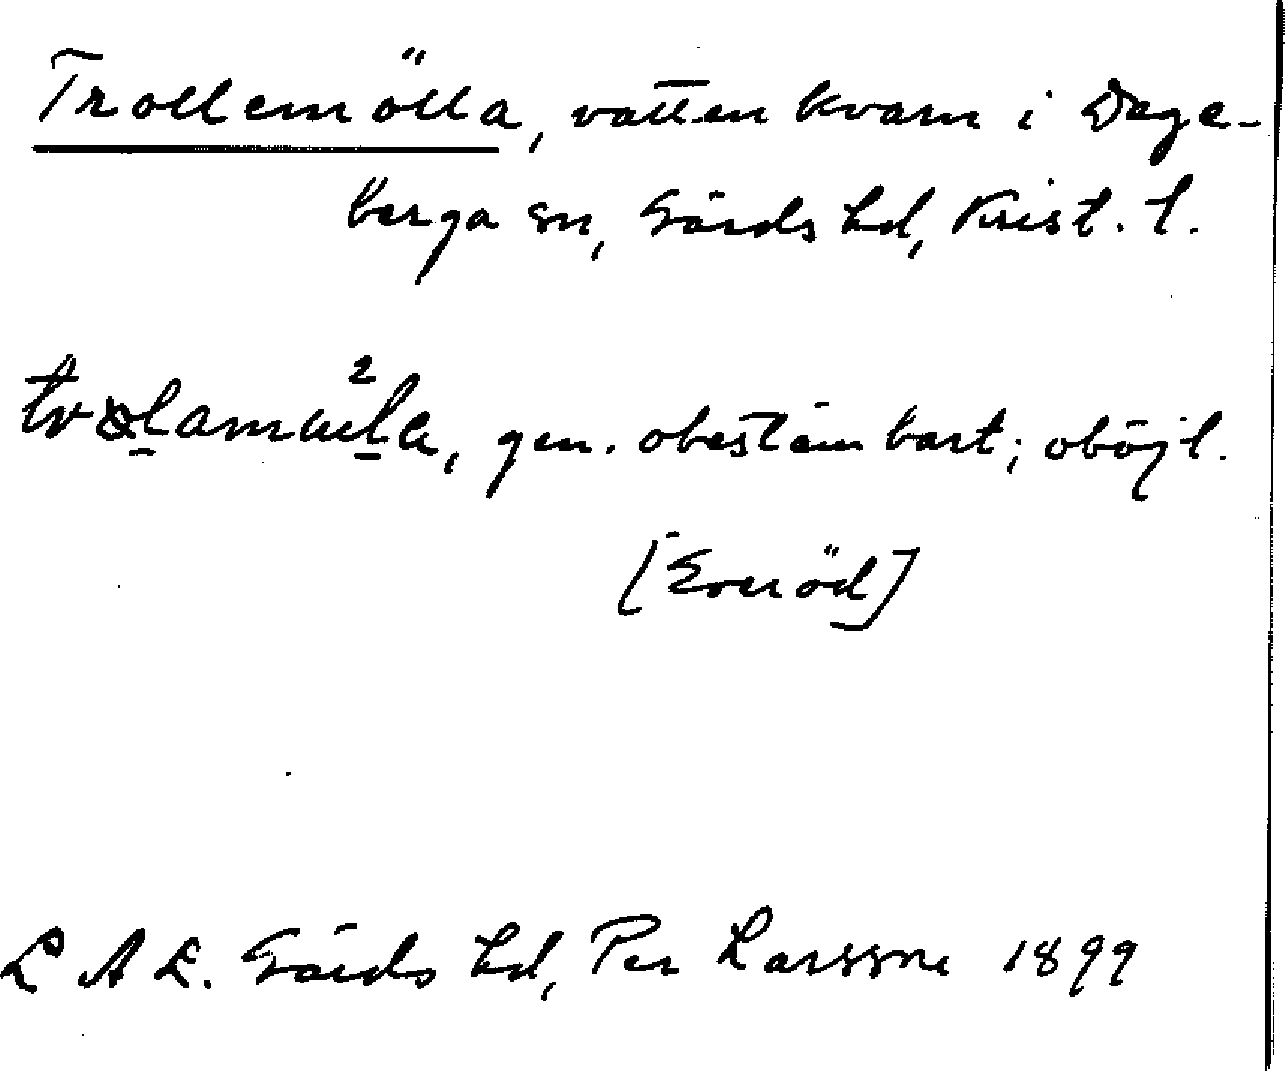 Trollemölla, vattenkvarn i Dege-
berga sn, Gärds hd, Krist. l.
gen. obestämbart; oböjl.
[Everöd]
L A L. Gärds hd, Per Larsson 1899